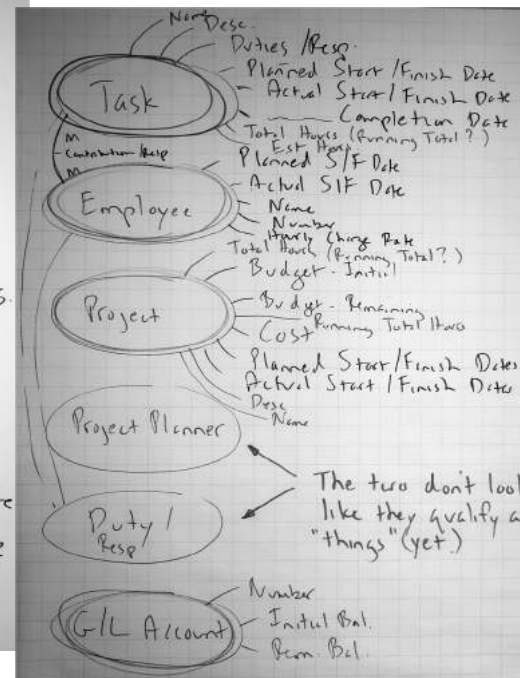 Name
Desc.
Duties / Resp.
Planned Start / Finish Date
Actual Start / Finish Date
Task
Completion Date
Total Hours (Running Total?)
Est Hours
M
Contribution / Resp
M
Planned S/F Date
Actual S/F Date
Employee
Name
Number
Hourly Charge Rate
Total Hours (Running Total?)
Budget - Initial
Project
Budget - Remaining
Running Total Hours
Cost
Planned Start / Finish Dates
Actual Start / Finish Dates
Desc
Name
Project Planner
The two don't look
like they qualify a
"things" (yet)
Duty /
Resp
Number
G/L Account
Initial Bal.
Rem. Bal.